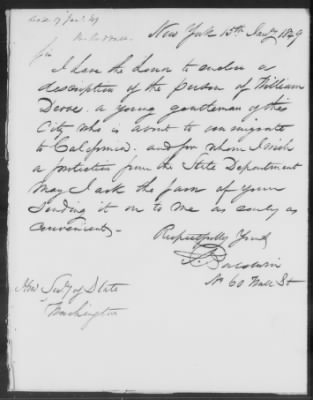 New York 15th Jany 1849
Sir
I have the honor to enclose a
description of the person of William
a young gentleman of this
City who is about to emigrate
to California. and for whom I wish
a protection from the State Department
May I ask the favor of your
sending it on to me as early as
convenient.-
Respectfully Yours
Baldwin
No 60 Wall St
Hon Secy of State
Washington